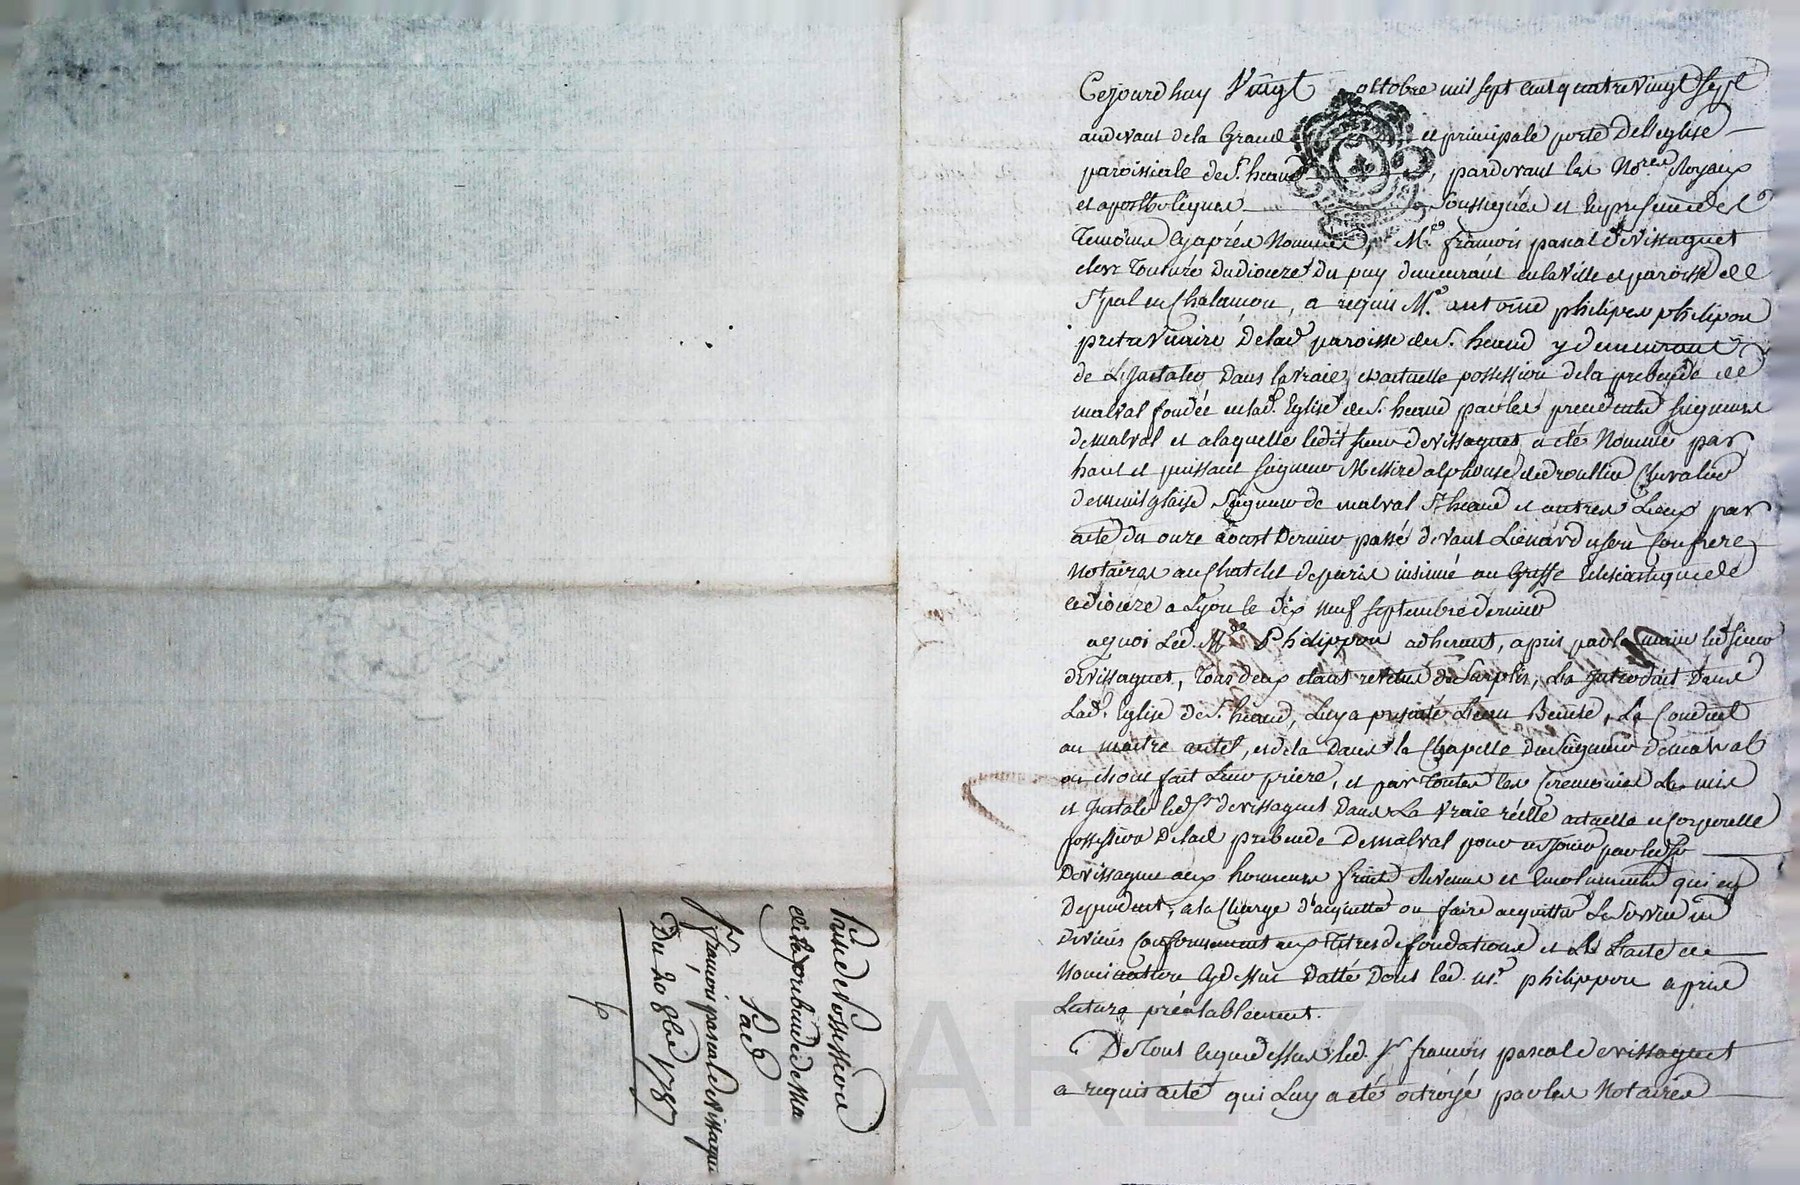 Cejourdhuy Vingt octobre mil sept cent quatre vingt sept
audevant de la Grand et principale porte de l'eglise
paroissiale de St. heand, pardevant les No.res Royaux
et apostholiques soussignés et En presence des
Temoins cy après Nommés, Mre. françois pascal de Vissaguet
clerc Tonsuré du dioceze du puy demeurant en la Ville et paroisse de
St. pal en Chalancon, a requis Me. antoine philipes philipon
pretre Vicaire de lad. paroisse de St. heand y demeurant
de L'Installer dans la vraie et actuelle possession de la prebende de
malval fondée en lad. Eglise de St. heand par les precedents seigneurs
de malval et a laquelle ledit sieur devissaguet a été Nommé par
haut et puissant seigneur Messire alphonse de droullin Chevalier
demenilglaise seigneur de malval St. heand et autres Lieux par
acte du onze aoust Dernier passé devant Lienard Confrere
Notaires au Chatelet de paris insinué au Greffe Eclesiastique de
ce dioceze a Lyon le dix neuf septembre dernier
aquoi Led. Me. Philippon adherant, a pris par la main led. sieur
devissaguet, tous deux étant revetus de surplis, L'a Introduit dans
Lad. Eglise de St. heand, Luy a presenté L'eau Benite, L'a Conduit
au maitre autel, et de la dans la Chapelle du seigneur de malval
ou ils ont fait Leur priere, et par toutes les Ceremonies L'a mis
et Installé led. Sr. devissaguet dans La vraie réelle actuelle et Corporelle
possession de lad. prebende de malval pour en jouir par led. Sr.
Devissaguet aux honneurs fruits Revenus et Emoluments qui en
Dependent, a la Charge d'acquitter ou faire acquitter Le service
Divin Conformement aux titres de fondations et L'acte de
Nomination cy dessus Datté Dont led. Me. philippon a pris
Lecture préalablement.
De Tout ce que dessus led. Sr. françois pascal Devissaguet
a requis acte qui Luy a été octroyé par les Notaires
Prise de Possession
de la prebende de Mal
Par
Sr. françois pascal devissague
Du 20 8bre 1787